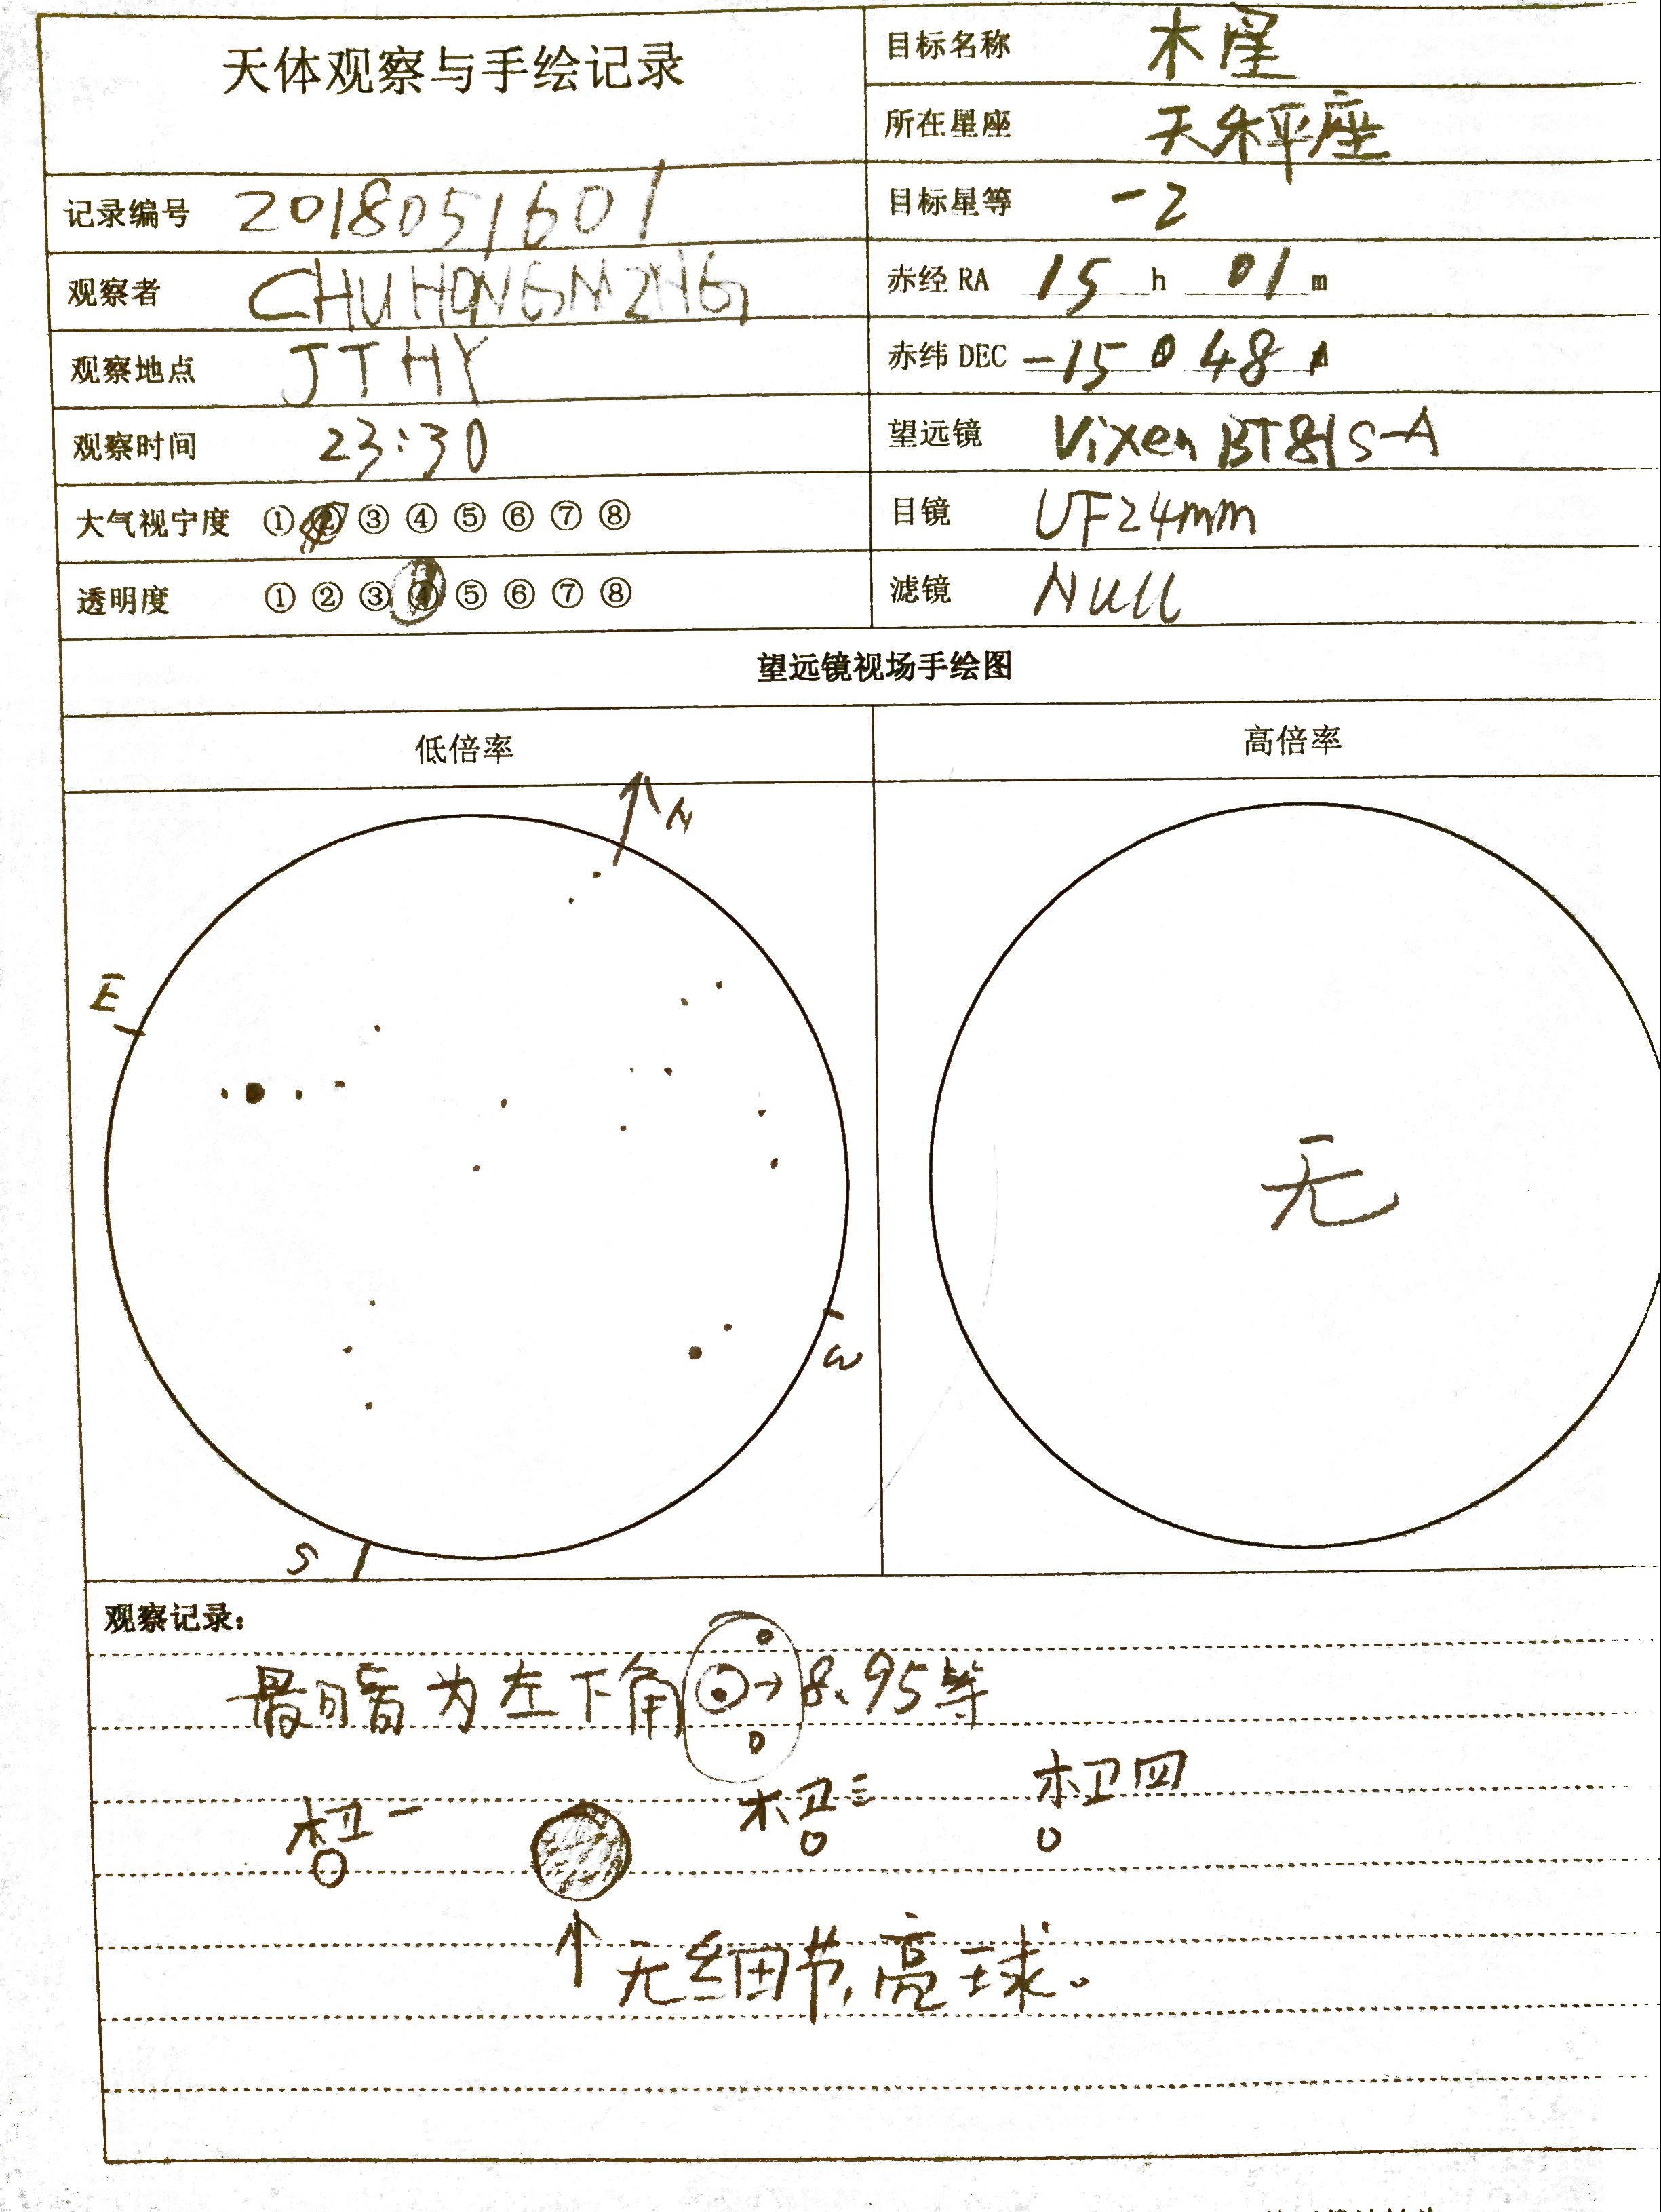 天体观察与手绘记录
目标名称 木星
所在星座 天秤座
记录编号 2018051601
目标星等 -2
观察者
赤经 RA 15 h 01 m
观察地点 JTHY
赤纬 DEC -15 0 48
观察时间 23:30
望远镜 Vixen BT81S-A
大气视宁度 ① ② ③ ④ ⑤ ⑥ ⑦ ⑧
目镜 UF24mm
透明度 ① ② ③ ④ ⑤ ⑥ ⑦ ⑧
滤镜 NULL
望远镜视场手绘图
低倍率
高倍率
N
E
无
W
S
观察记录:
最暗为左下角 → 8.95等
木卫一 木卫三 木卫四
↑ 无细节,亮球。